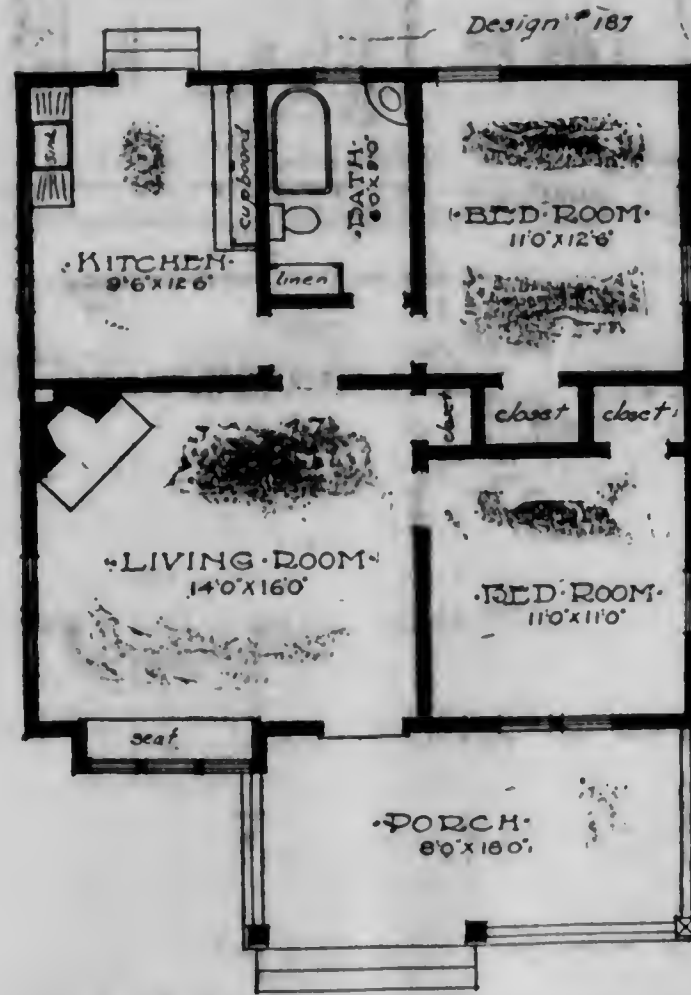 Design #187
sink
cupboard
·BATH·
6'0"X9'0"
linen
·KITCHEN·
9'6"X12'6"
·BED·ROOM·
11'0"X12'6"
closet
closet
closet
·LIVING·ROOM·
14'0"X16'0"
·BED·ROOM·
11'0"X11'0"
seat
·PORCH·
8'0"X18'0"